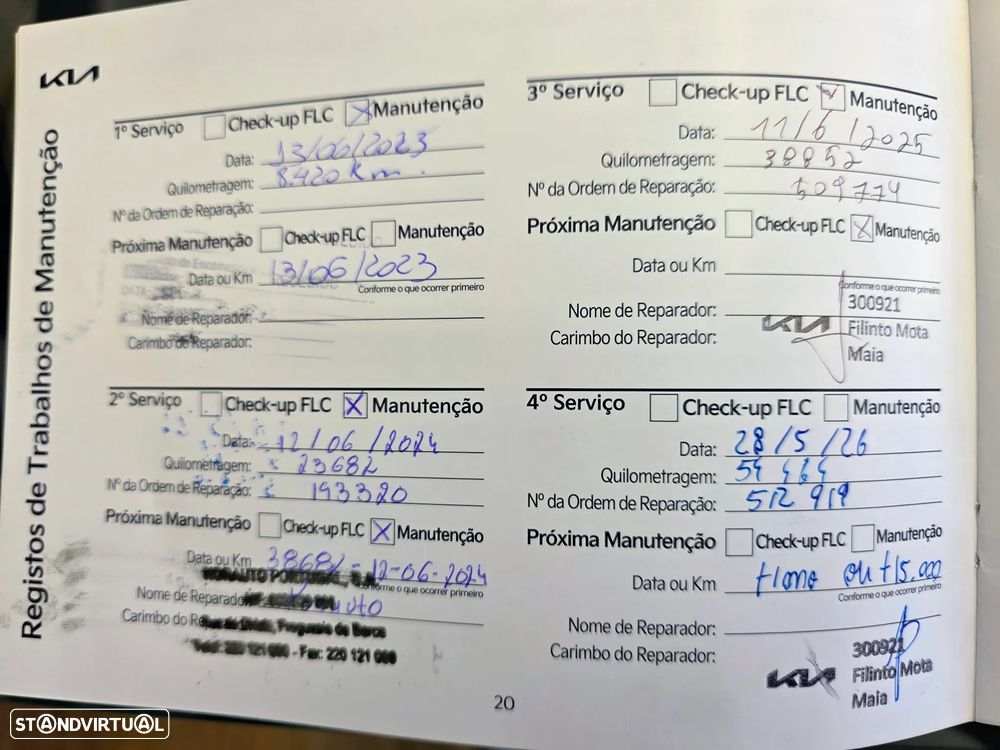 KIA
Registos de Trabalhos de Manutenção
1º Serviço Check-up FLC Manutenção
Data: 13/06/2023
Quilometragem: 8.420 Km.
Nº da Ordem de Reparação:
Próxima Manutenção Check-up FLC Manutenção
Data ou Km 13/06/2023
Conforme o que ocorrer primeiro
Nome de Reparador:
Carimbo do Reparador:
2º Serviço Check-up FLC X Manutenção
Data: 12/06/2024
Quilometragem: 23682
Nº da Ordem de Reparação: 193320
Próxima Manutenção Check-up FLC X Manutenção
Data ou Km 38682 - 12-06-2024
Conforme o que ocorrer primeiro
NORAUTO PORTUGAL, S.A.
Nome de Reparador
Carimbo do
Telef: 220 121 080 - Fax: 220 121 089
3º Serviço Check-up FLC Manutenção
Data: 11/6/2025
Quilometragem: 38852
Nº da Ordem de Reparação: 509774
Próxima Manutenção Check-up FLC X Manutenção
Data ou Km
Conforme o que ocorrer primeiro
Nome de Reparador:
Carimbo do Reparador:
KIA
300921
Filinto Mota
Maia
4º Serviço Check-up FLC Manutenção
Data: 28/5/26
Quilometragem: 54 464
Nº da Ordem de Reparação: 512919
Próxima Manutenção Check-up FLC Manutenção
Data ou Km +1ano ou +15.000
Conforme o que ocorrer primeiro
Nome de Reparador:
Carimbo do Reparador:
KIA
300921
Filinto Mota
Maia
20
STANDVIRTUAL